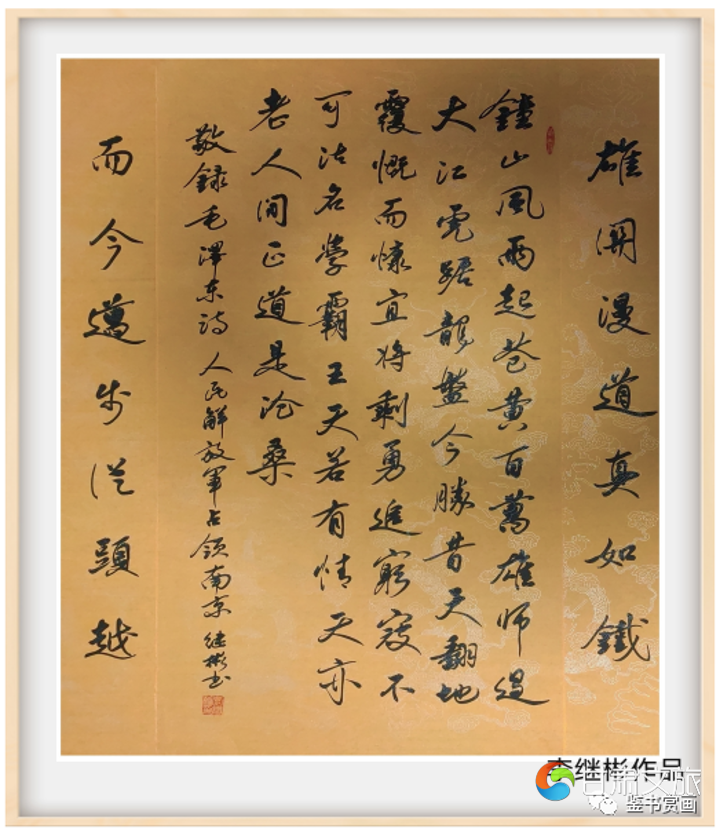 雄關漫道真如鐵
鐘山風雨起苍黄百萬雄师過
大江虎踞龍盤今勝昔天翻地
覆慨而慷宜将剩勇追窮寇不
可沽名學霸王天若有情天亦
老人間正道是沧桑
敬録毛澤东詩 人民解放軍占领南京 继彬书
而今邁步從頭越
李继彬作品
甘肃文旅
鉴书赏画